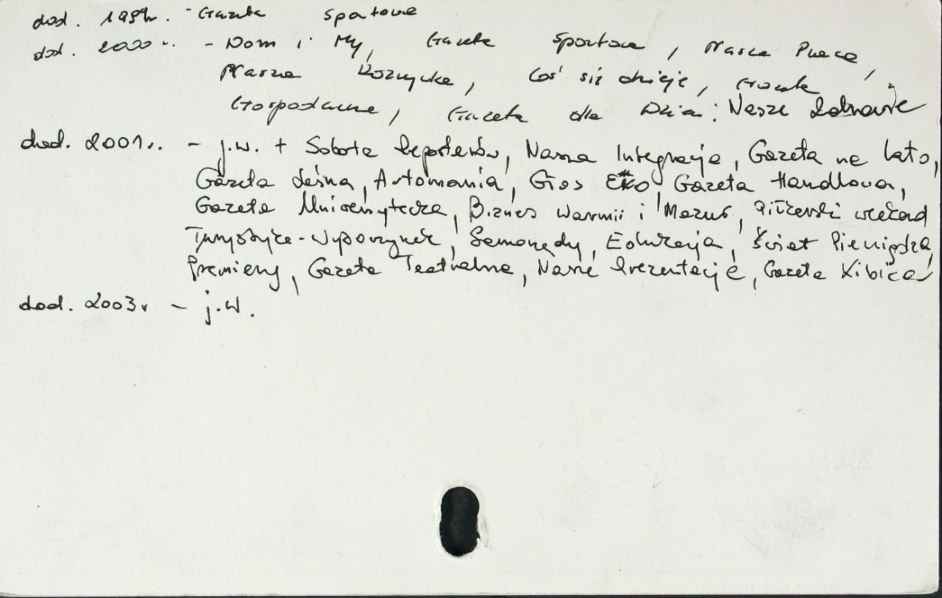 dod. 199 r. - Gazeta Sportowa
dod. 2000 r. - Dom i My, Gazeta Sportowa, Nasza Praca,
Nasza Rozrywka, Coś się dzieje, Gazeta
Gospodarcza, Gazeta dla Dzieci; Nasze Zdrowie
dod. 2001 r. - j.w. + Sobota Reporterów, Nasza Integracja, Gazeta na Lato,
Gazeta Leśna, Automania, Głos Eko, Gazeta Handlowa,
Gazeta Uniwersytecka, Biznes Warmii i Mazur, Piłkarski weekend
Turystyka-Wypoczynek, Samorządy, Edukacja, Świat Pieniądza,
Premiery, Gazeta Teatralna, Nasze Prezentacje, Gazeta Kibica
dod. 2003 r - j.w.